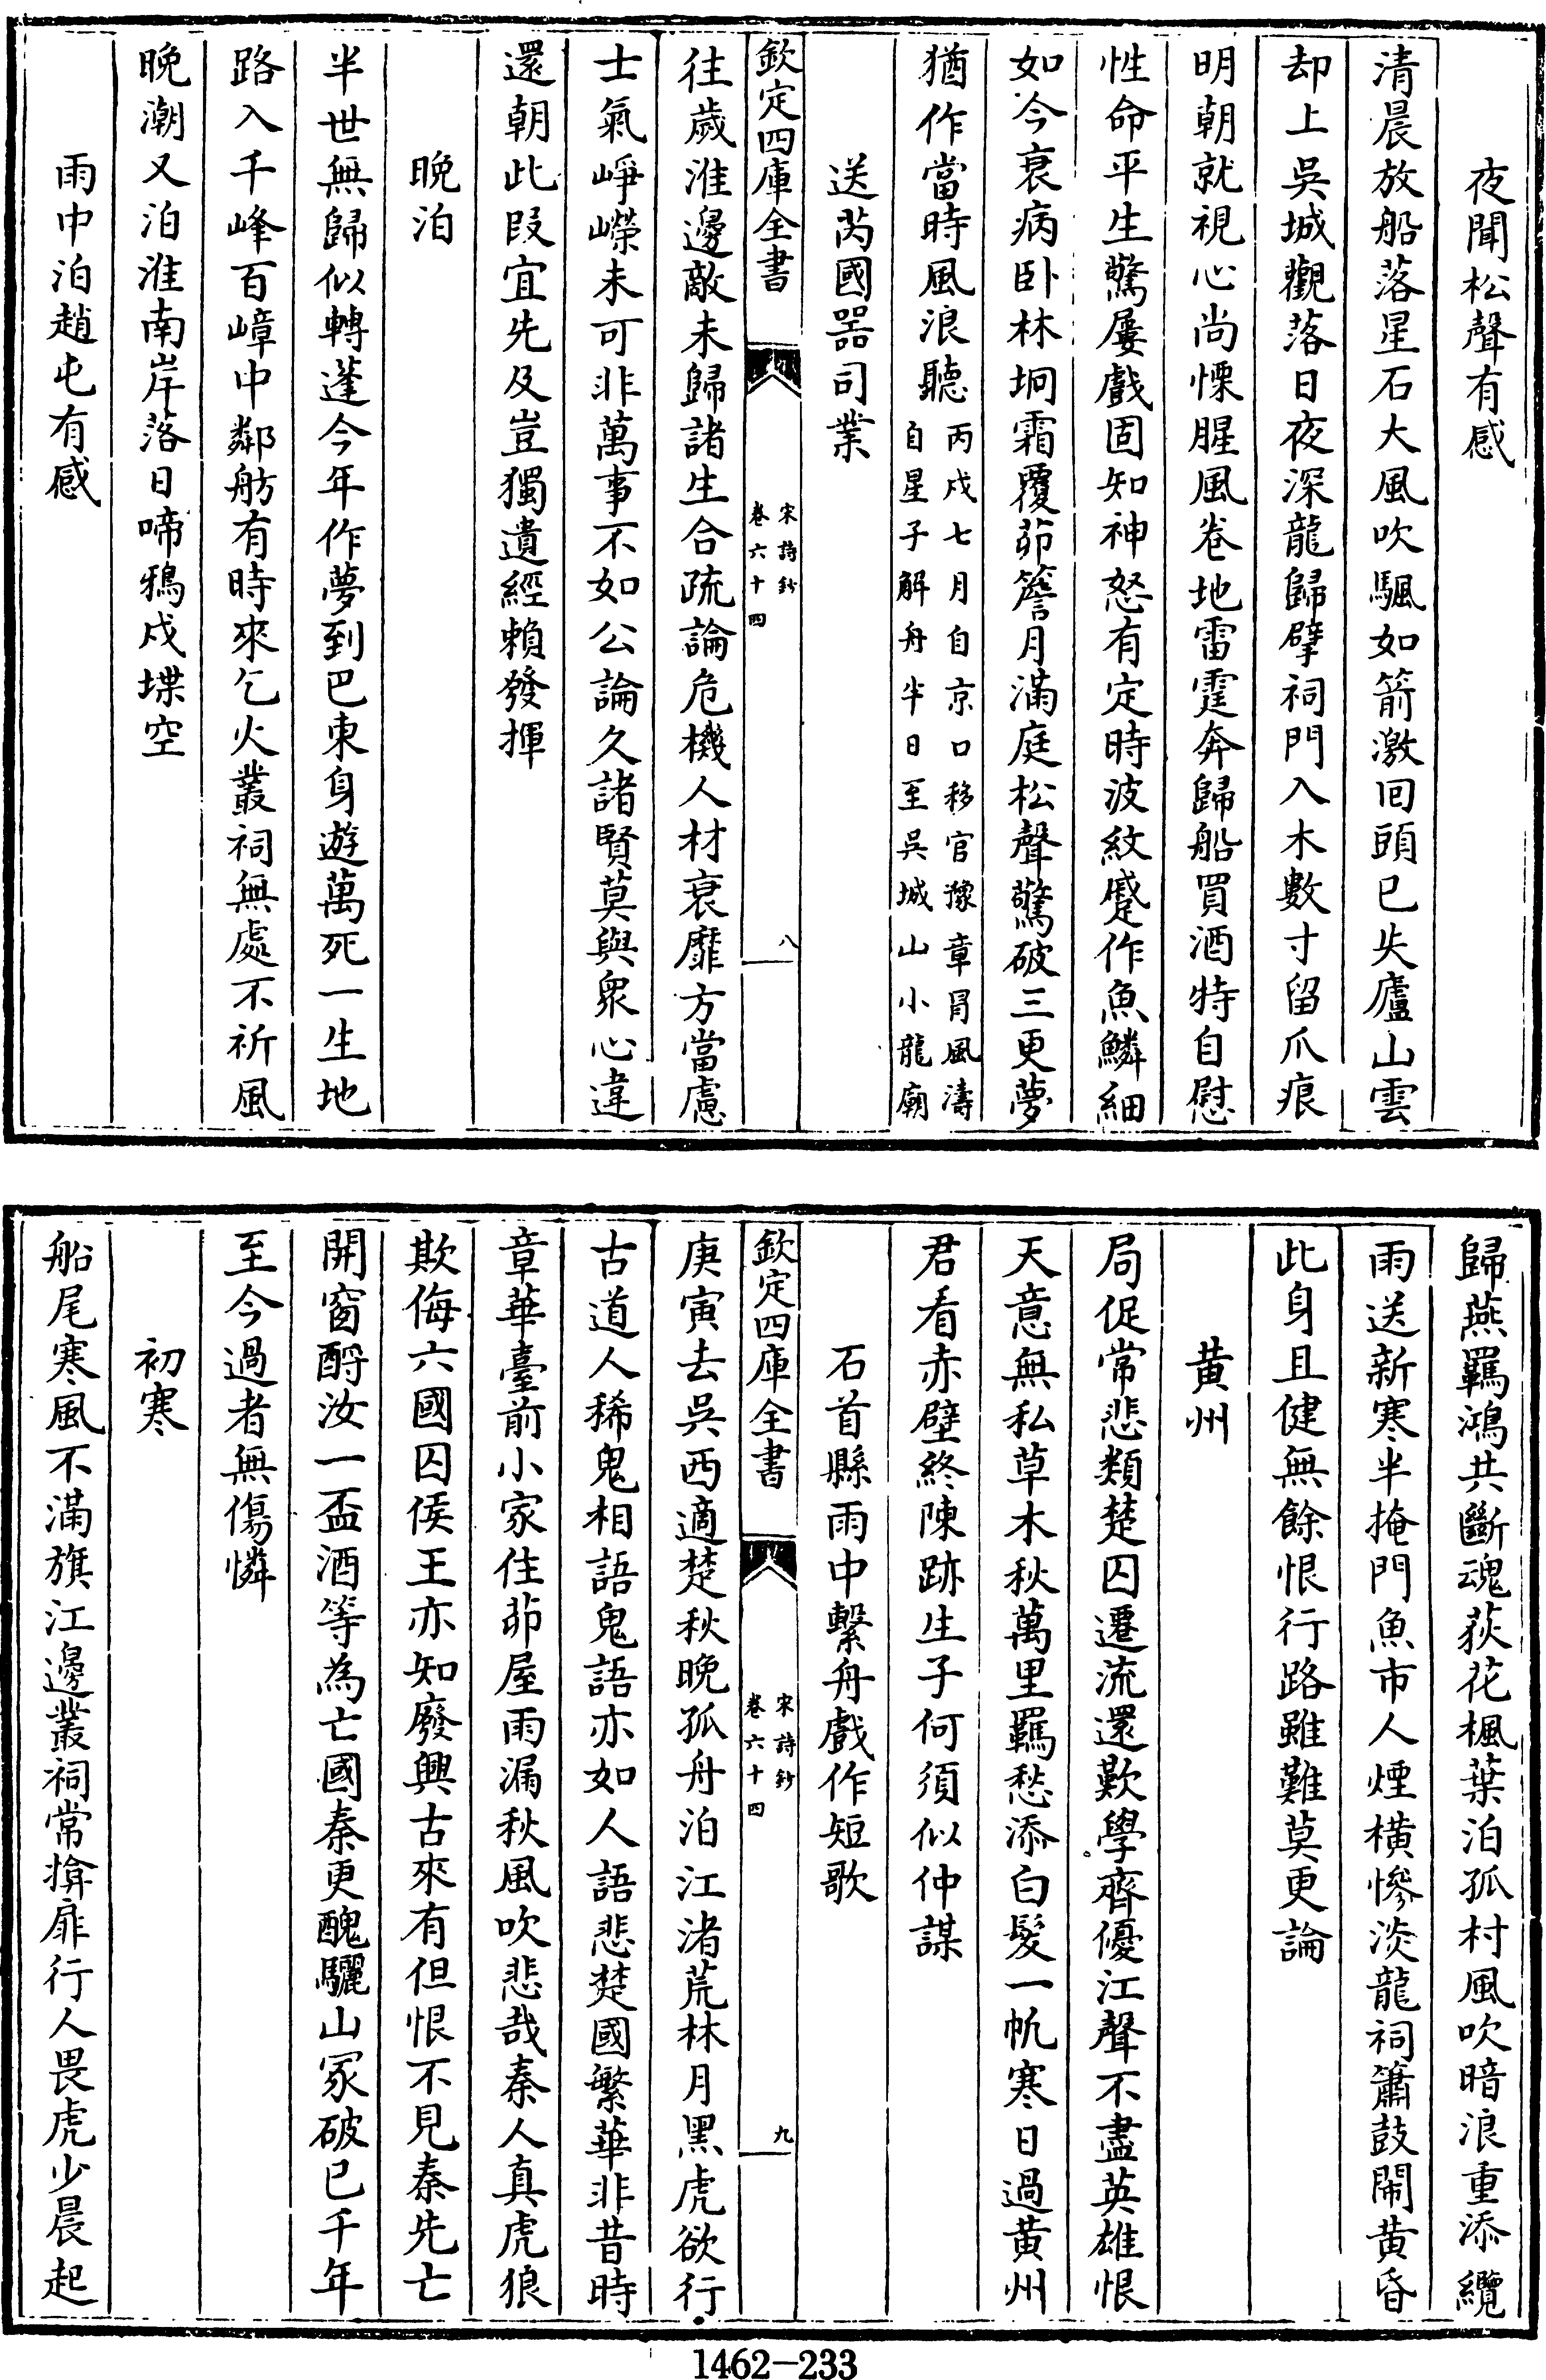 夜聞松聲有感
清晨放船落星石大風吹颿如箭激回頭已失廬山雲
却上吳城觀落日夜深龍歸擘祠門入木數寸留爪痕
明朝就視心尚慄腥風卷地雷霆奔歸船買酒特自慰
性命平生驚屢戲固知神怒有定時波紋蹙作魚鱗細
如今衰病卧林坰霜覆茆簷月滿庭松聲驚破三更夢
猶作當時風浪聽丙戌七月自京口移官豫章冒風濤
自星子解舟半日至吳城山小龍廟
送芮國器司業
欽定四庫全書
宋詩鈔
卷六十四
八
往歲淮邊敵未歸諸生合疏論危機人材衰靡方當慮
士氣崢嶸未可非萬事不如公論久諸賢莫與衆心違
還朝此段宜先及豈獨遺經賴發揮
晚泊
半世無歸似轉蓬今年作夢到巴東身遊萬死一生地
路入千峰百嶂中鄰舫有時來乞火叢祠無處不祈風
晚潮又泊淮南岸落日啼鴉戍堞空
雨中泊趙屯有感
歸燕羈鴻共斷魂荻花楓葉泊孤村風吹暗浪重添纜
雨送新寒半掩門魚市人煙橫慘淡龍祠簫鼓鬧黃昏
此身且健無餘恨行路雖難莫更論
黃州
局促常悲類楚囚遷流還歎學齊優江聲不盡英雄恨
天意無私草木秋萬里羈愁添白髮一帆寒日過黃州
君看赤壁終陳跡生子何須似仲謀
石首縣雨中繫舟戲作短歌
欽定四庫全書
宋詩鈔
卷六十四
九
庚寅去吳西適楚秋晚孤舟泊江渚荒林月黑虎欲行
古道人稀鬼相語鬼語亦如人語悲楚國繁華非昔時
章華臺前小家住茆屋雨漏秋風吹悲哉秦人真虎狼
欺侮六國囚侯王亦知廢興古來有但恨不見秦先亡
開窗酹汝一盃酒等為亡國秦更醜驪山冢破已千年
至今過者無傷憐
初寒
船尾寒風不滿旗江邊叢祠常揜扉行人畏虎少晨起
1462-233